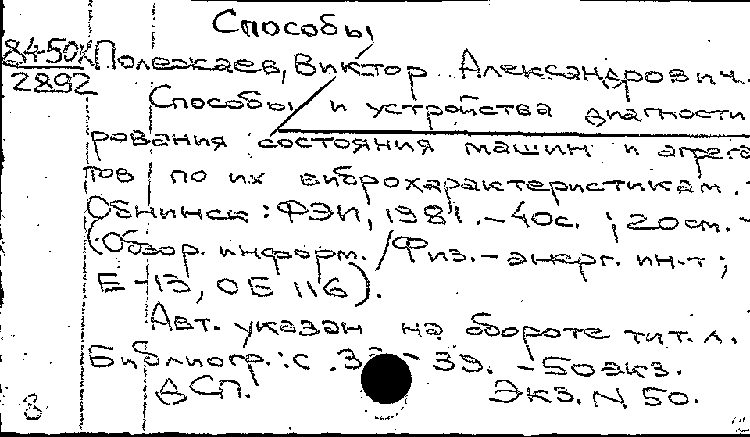 Способы
8450к Полежаев, Виктор Александрович.
2892
Способы и устройства диагности
рования состояния машин и агрега
тов по их виброхарактеристикам. -
Обнинск: ФЭИ, 1981. - 40с. ; 20см. -
(Обзор. информ. / Физ. - энерг. ин-т ;
ОБ 116).
Авт. указан на обороте тит. л.
Библиогр.: с. - 39. - 50экз.
ДСП. Экз. N 50.